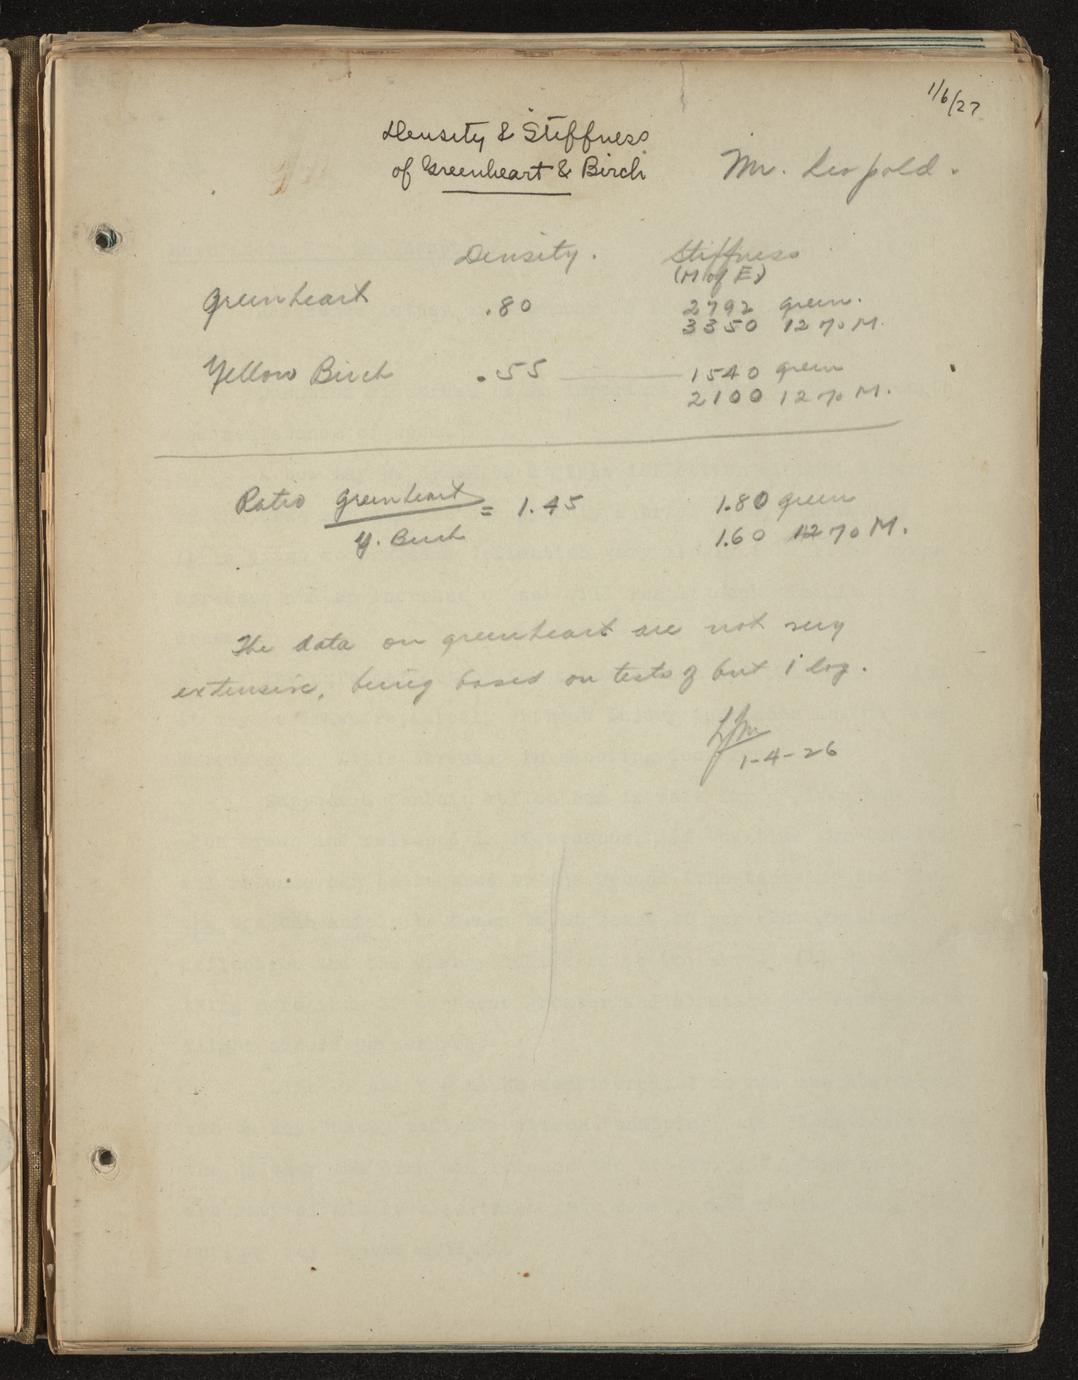 1/6/27
Density & Stiffness
of Greenheart & Birch
Mr. Leopold.
Density. Stiffness
(M of E)
Greenheart .80 2792 green.
3350 12% M.
Yellow Birch .55 1540 green
2100 12% M.
Ratio greenheart = 1.45 1.80 green
Y. Birch 1.60 12% M.
The data on greenheart are not very
extensive, being based on tests of but 1 log.
1-4-26